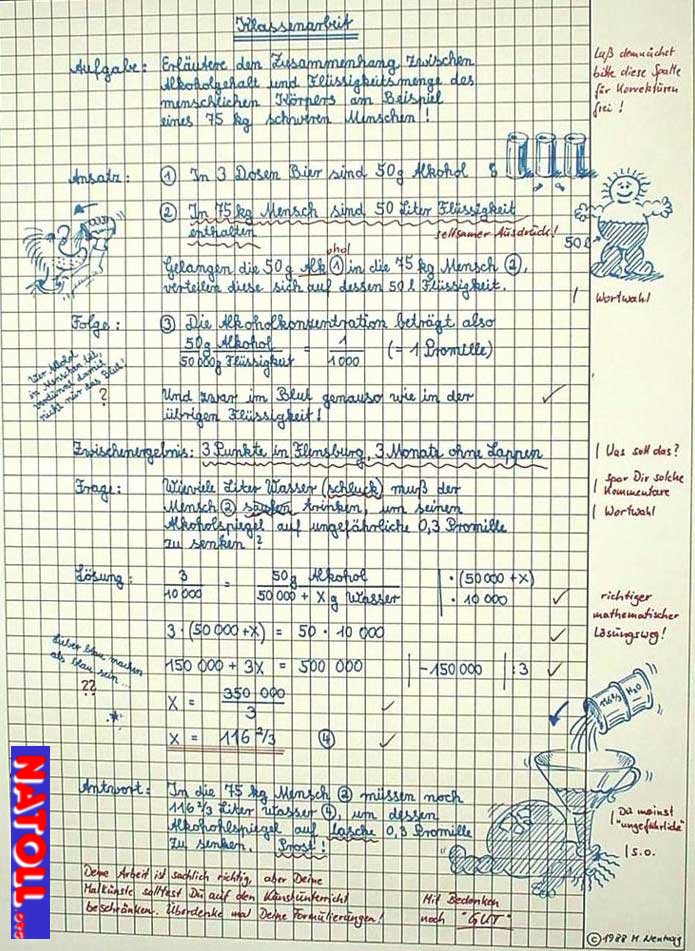 Klassenarbeit
Aufgabe: Erläutere den Zusammenhang zwischen
Alkoholgehalt und Flüssigkeitsmenge des
menschlichen Körpers am Beispiel
eines 75 kg schweren Menschen!
Laß demnächst
bitte diese Spalte
für Korrekturen
frei!
Ansatz: ① In 3 Dosen Bier sind 50g Alkohol
② In 75 kg Mensch sind 50 Liter Flüssigkeit
enthalten
seltsamer Ausdruck!
50 l
Gelangen die 50g Alk ohol ① in die 75 kg Mensch ②,
verteilen diese sich auf dessen 50 l Flüssigkeit.
| Wortwahl
Folge: ③ Die Alkoholkonzentration beträgt also
50g Alkohol / 50000g Flüssigkeit = 1 / 1000 (= 1 Promille)
Wer Alkohol
in Menschen tut,
verdünnt damit
nicht nur das Blut!
?
Und zwar im Blut genauso wie in der
übrigen Flüssigkeit! ✓
Zwischenergebnis: 3 Punkte in Flensburg, 3 Monate ohne Lappen
| Was soll das?
Frage: Wieviele Liter Wasser (schluck) muß der
Mensch ② saufen trinken, um seinen
Alkoholspiegel auf ungefährliche 0,3 Promille
zu senken?
| Spar Dir solche
Kommentare
| Wortwahl
Lösung: 3 / 10 000 = 50g Alkohol / 50 000 + X g Wasser | · (50 000 + X)
· 10 000 ✓
richtiger
mathematischer
Lösungsweg!
3 · (50 000 + X) = 50 · 10 000 ✓
150 000 + 3X = 500 000 | -150 000 | : 3 ✓
Lieber blau machen
als blau sein ...
??
X = 350 000 / 3 ✓
X = 116 2/3 ④ ✓
116 2/3 H₂O
Antwort: In die 75 kg Mensch ② müssen noch
116 2/3 Liter Wasser ④, um dessen
Alkohohlspiegel auf lasche 0,3 Promille
zu senken. Prost!
| Du meinst
"ungefährliche"
| s.o.
Deine Arbeit ist sachlich richtig, aber Deine
Malkünste solltest Du auf den Kunstunterricht
beschränken. Überdenke mal Deine Formulierungen!
Mit Bedenken
noch "GUT"
© 1988 M.
NATOLL.org